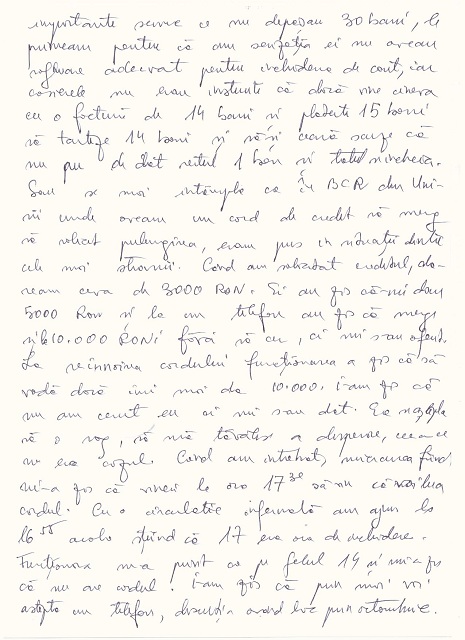 importante servere ce nu depășeau 30 bani, le
primeam pentru că am senzația ei nu aveau
software adecvat pentru închiderea de cont, iar
casierele nu erau instruite că dacă vine cineva
cu o factură de 14 bani și plătește 15 bani
să taxeze 14 bani și să-și ceară scuze că
nu pu de dat restul 1 ban și totul s-incheia.
Sau se mai întâmpla ca în BCR din Uni-
rii unde aveam un card de credit să merg
să solicit prelungirea, eram pus în situații dintre
cele mai stranii. Când am solicitat creditul, do-
ream ceva de 3000 RON. Ei au zis că-mi dau
5000 Ron și la un telefon au zis că merge
și la 10.000 RONi fără să cer, ci mi s-au oferit.
La reînnoirea cardului funcționarea a zis că să
vadă dacă îmi mai dă 10.000. I-am zis că
nu am cerut eu ci mi s-au dat. Ea aștepta
să o rog, să mă tăvălesc a disperare, ceea ce
nu era cazul. Când am întrebat,
mi-a zis că vineri la ora 17³⁰ să nu
cardul. Cu o circulație infernală am ajuns la
16⁵⁵ acolo știind că 17 era ora de închidere.
Funcționara m-a purit ca pe felul 14 și mi-a zis
că nu are cardul. I-am zis că prin mâini voi
aștepta un telefon, discuția având loc prin octombrie.